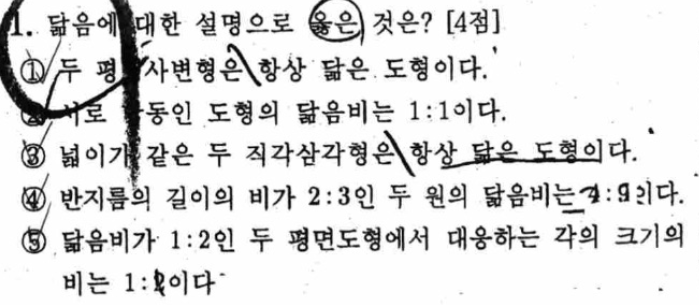 1. 닮음에 대한 설명으로 옳은 것은? [4점]
① 두 평 사변형은 항상 닮은 도형이다.
② 서로 동인 도형의 닮음비는 1:1이다.
③ 넓이가 같은 두 직각삼각형은 항상 닮은 도형이다.
④ 반지름의 길이의 비가 2:3인 두 원의 닮음비는 4:9이다.
⑤ 닮음비가 1:2인 두 평면도형에서 대응하는 각의 크기의
비는 1:2이다